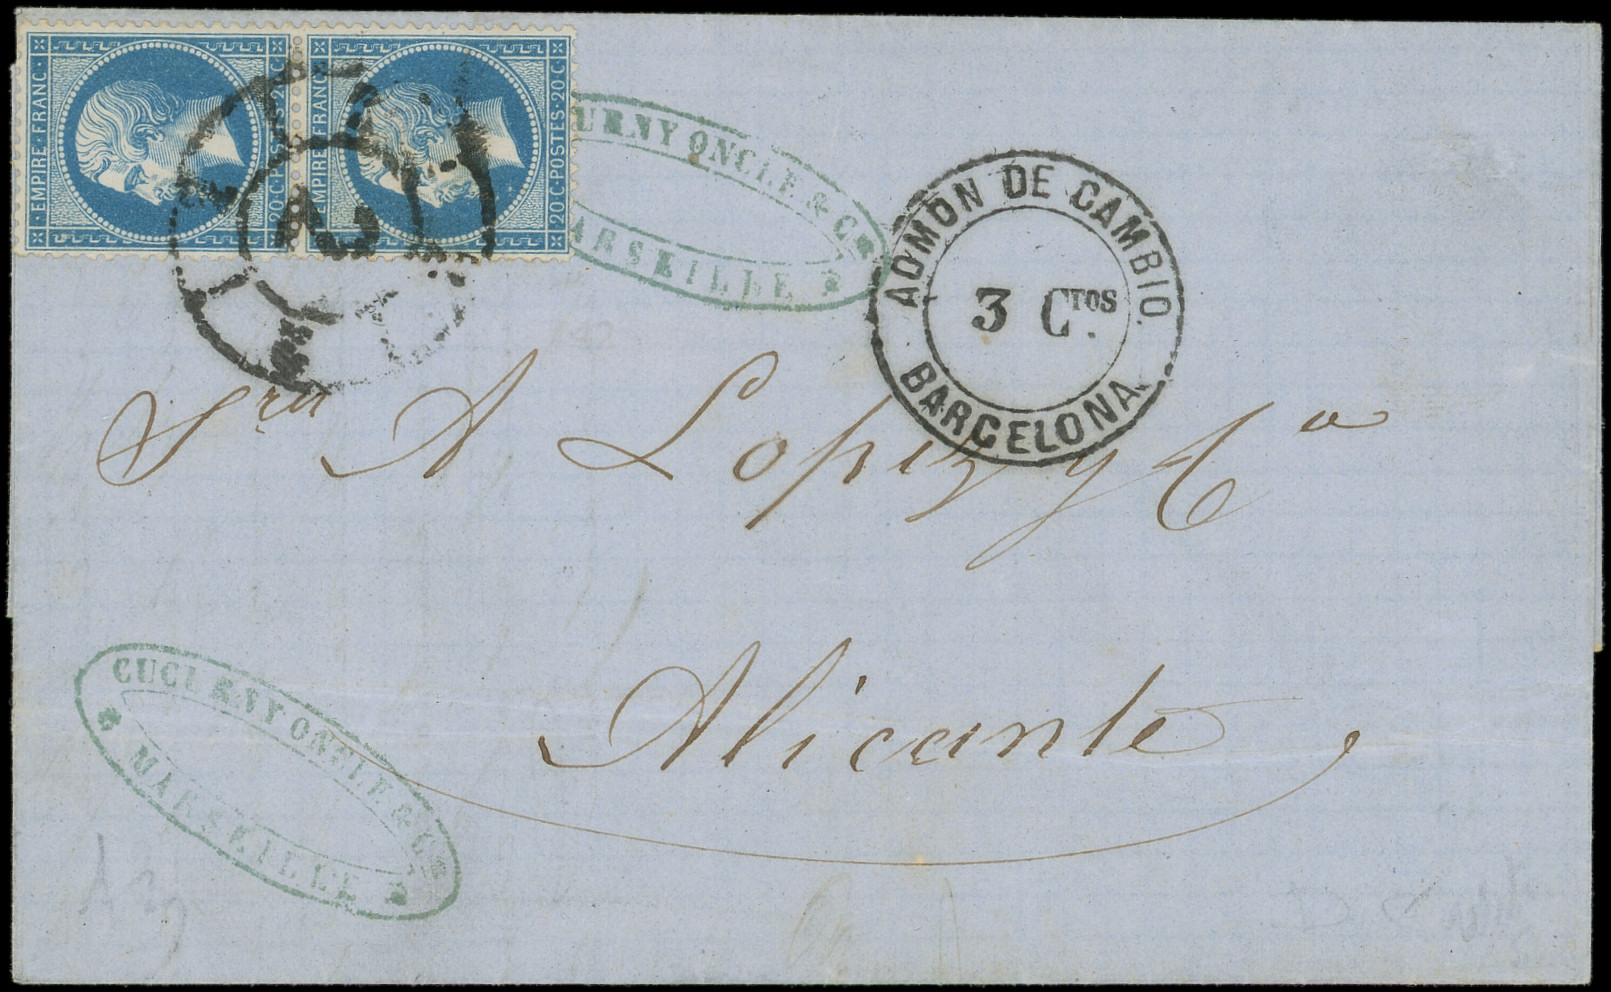 EMPIRE·FRANC·
20·C·POSTES·20 C·
EMPIRE·FRANC·
20·C·POSTES·20 C·
2
URNY ONCLE & Cie
ARSEILLE
ADMON DE CAMBIO.
3 CTOS.
BARCELONA.
Sres A Lopez y Ca
Alicante
CUCURNY ONCLE & Cie
MARSEILLE